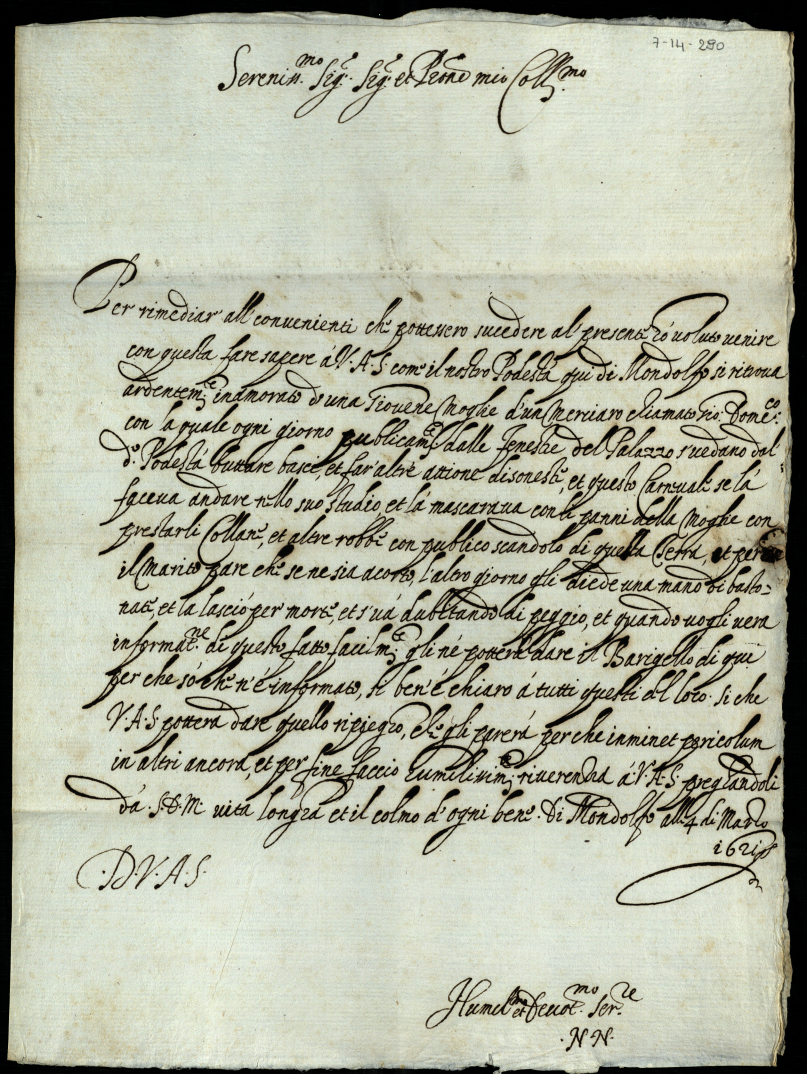 7-14-290
Sereniss.mo Sig.r Sig.r et Pron̄e mio Coll.mo
Per rimediar all'convenienti ch̄e pottessero sucedere al' present' hó voluto venire
con questa fare sapere á V.A.S. com̄e il nostro Podestá qui di Mondolfo si ritrova
ardentem.te inamorato d'una Giovene Moglie d'un Merciaro chiamato Gio: Dom.co
con la quale ogni giorno publicam.te dalle fenestre del Palazzo s'vedano dal
d.o Podestá buttare basci, et far' altre attione disonest̄e, et questo Carnval̄e se lá
faceva andare nello suo studio, et lá mascarava con li panni della Moglie con
prestarli Collan̄e, et altre robb̄e con publico scandolo di questa Terra, et per
il Marito pare ch̄e se ne sia acorto, l'altro giorno gli diede una mano di basto-
nat̄e, et la lasció per mort̄e, et s'vá dubitando di peggio, et quando vogli vera
informat.ne di questo fatto facilm.te gli né potterá dare il Barigello di qui
per che só ch̄e n'é informato, si ben' é chiaro á tutti questi del loco. Si che
V.A.S. potterá dare quello ripiegho, ch̄e gli parerá perche inminet periculum
in altri ancora, et per fine faccio humilissim.te riverenzia á V.A.S. pregandoli
dá .S.D.M. vita longha et il colmo d'ogni ben̄e. Di Mondolfo alli 4 di Marzo
1621
.D.V.A.S.
Humil.mo et Devot.mo Ser.re
.N.N.